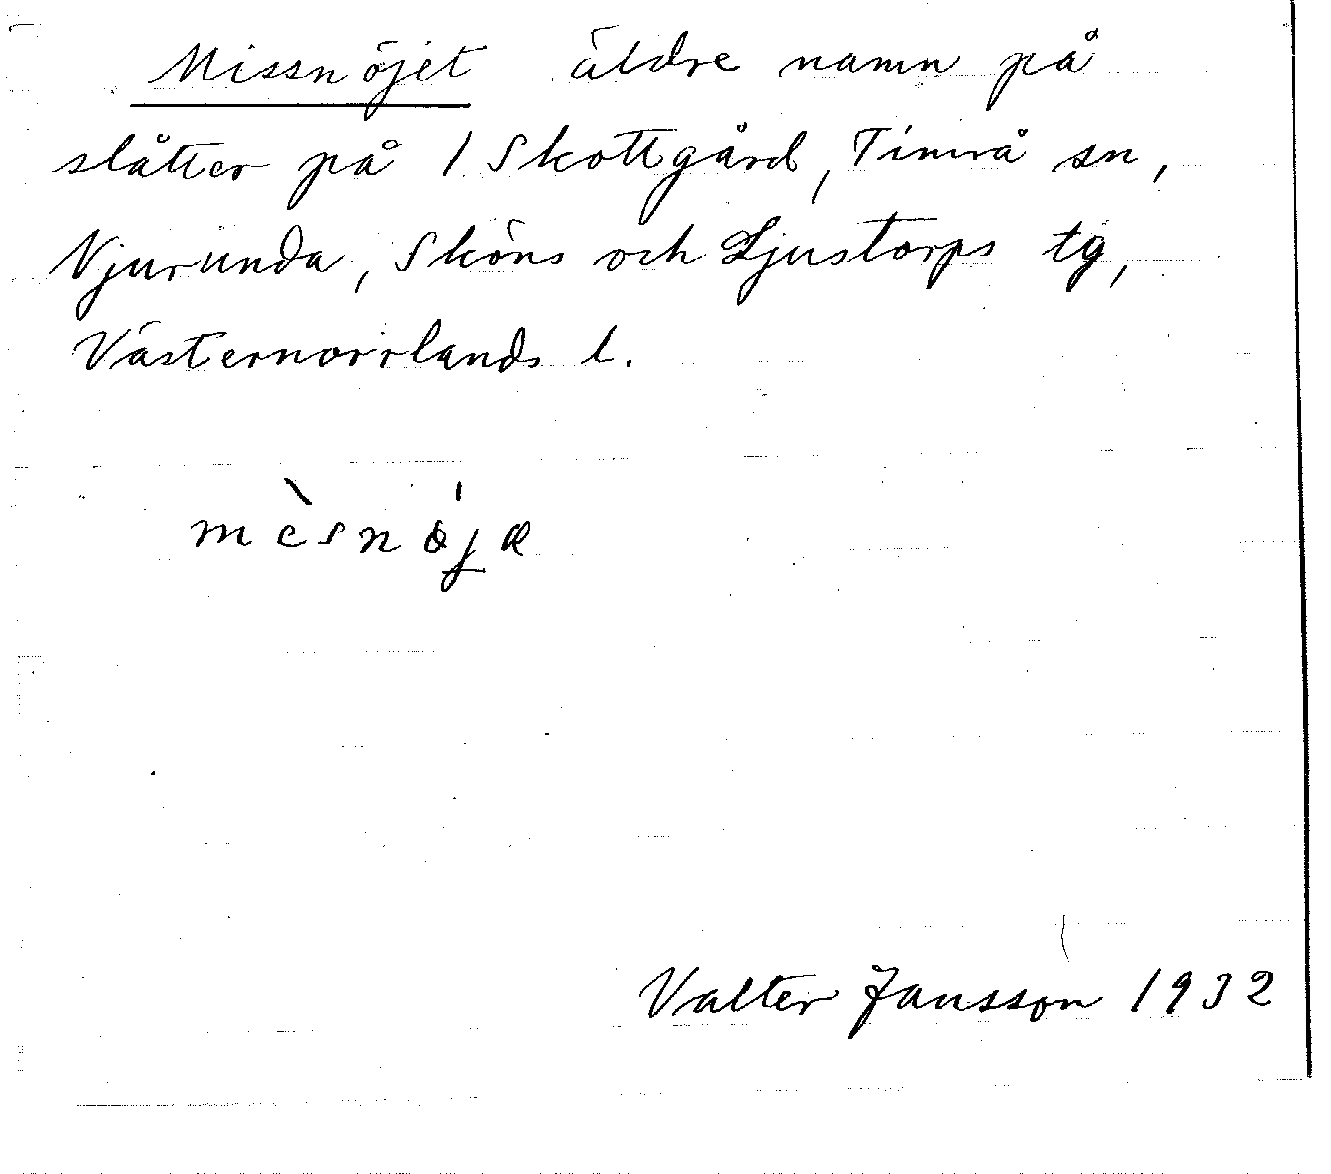 Missnöjet äldre namn på
slåtter på 1 Skottgård, Timrå sn,
Njurunda, Sköns och Ljustorps tg,
Västernorrlands l.
mèsnøja
Valter Jansson 1932